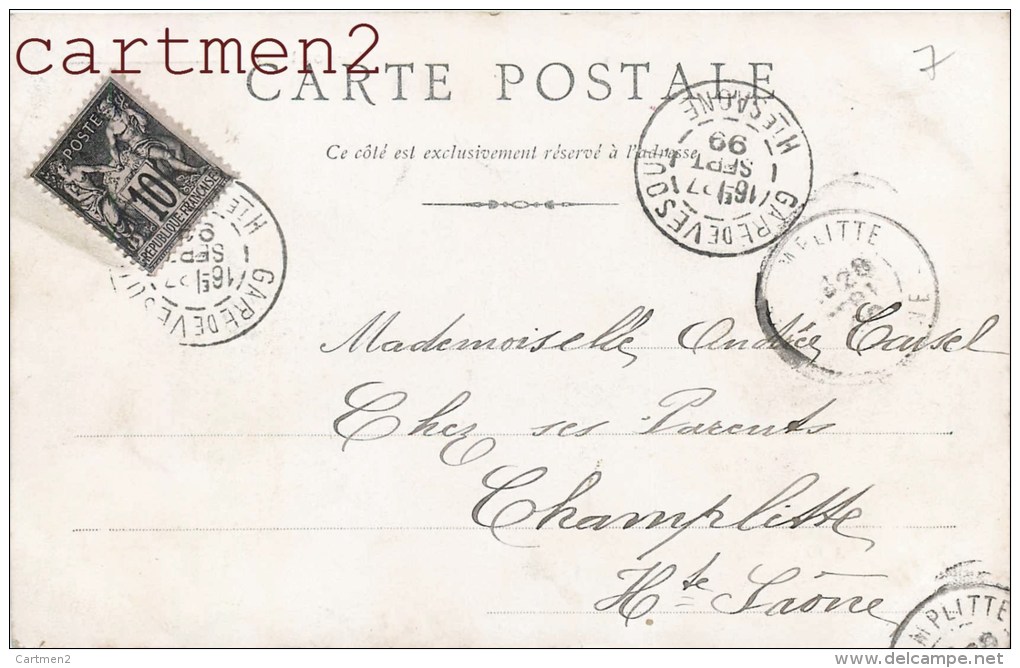 cartmen2
7
CARTE POSTALE
Ce côté est exclusivement réservé à l'adresse
POSTES
10
REPUBLIQUE FRANÇAISE
GARE DE VESOUL
16E
1
SEPT
GARE DE VESOUL
HTE SAONE
16E
1
SEPT
99
MPLITTE
Mademoiselle Andrée
Chez ses Parents
Champlitte
Hte Saône
MPLITTE
Cartmen2
delcampe.net